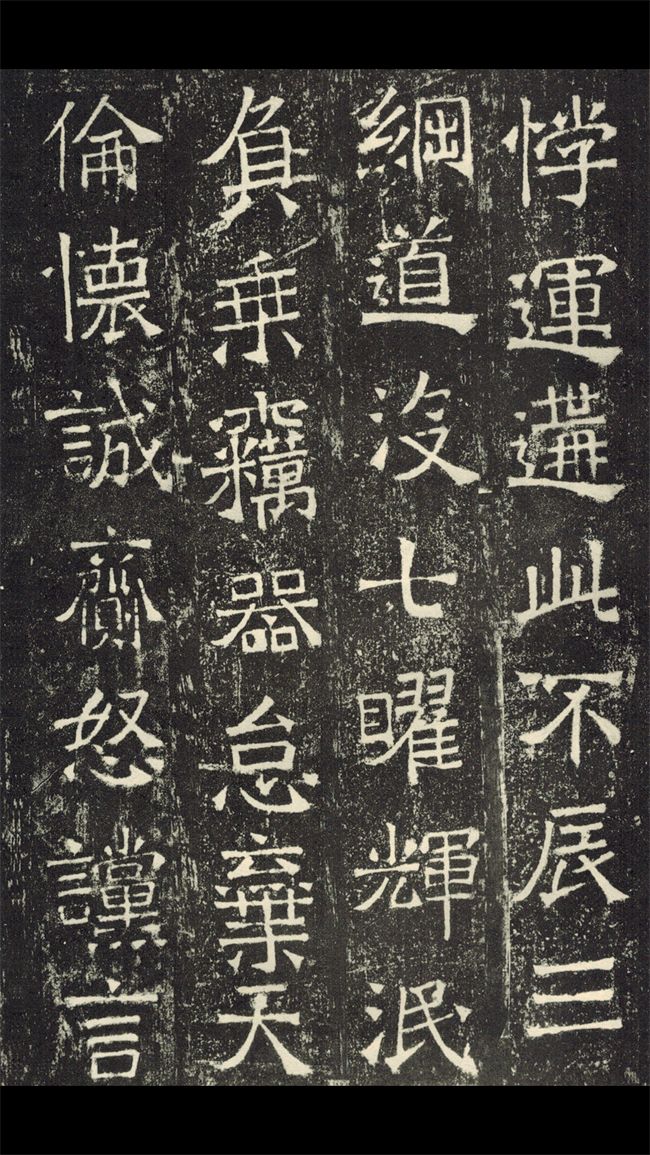 悖運遘此不辰三
綱道没七曜輝泯
負乗竊器怠棄天
倫懷誠齎怒讜言